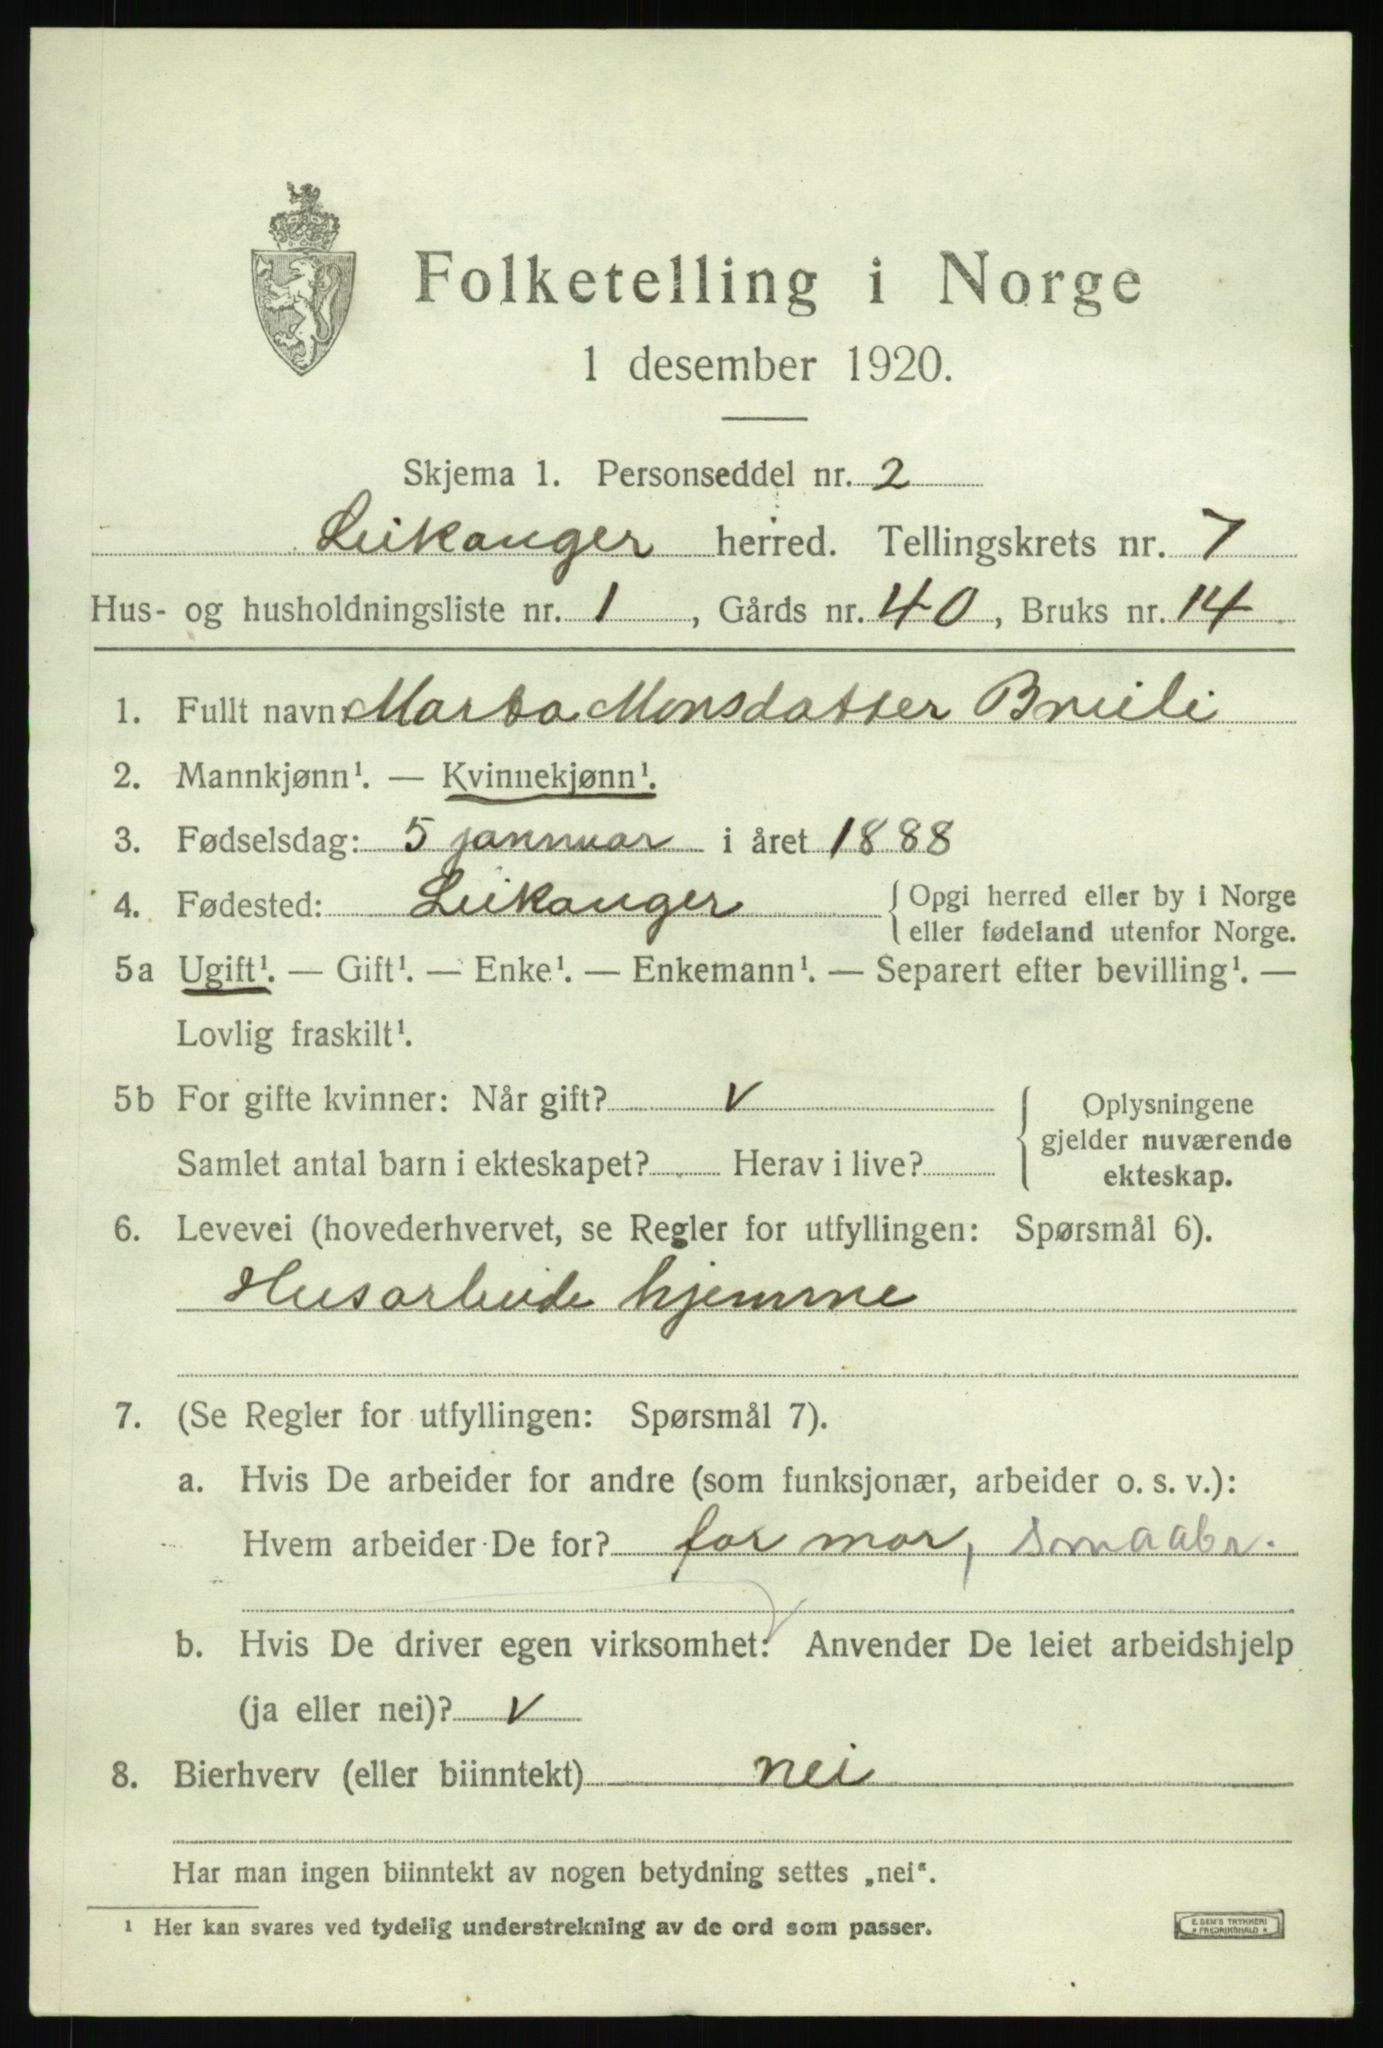 Folketelling i Norge
1 desember 1920.
Skjema 1. Personseddel nr. 2
Leikanger herred. Tellingskrets nr. 7
Hus- og husholdningsliste nr. 1, Gårds nr. 40, Bruks nr. 14
1. Fullt navn: Marta Monsdatter
2. Mannkjønn¹. — Kvinnekjønn¹.
3. Fødselsdag: 5 jannuar i året 1888
4. Fødested: Leikanger { Opgi herred eller by i Norge
eller fødeland utenfor Norge.
5a Ugift¹. — Gift¹. — Enke¹. — Enkemann¹. — Separert efter bevilling¹. —
Lovlig fraskilt¹.
5b For gifte kvinner: Når gift? v
Samlet antal barn i ekteskapet? Herav i live?
{ Oplysningene
gjelder nuværende
ekteskap.
6. Levevei (hovederhvervet, se Regler for utfyllingen: Spørsmål 6).
Husarbeide hjemme
7. (Se Regler for utfyllingen: Spørsmål 7).
a. Hvis De arbeider for andre (som funksjonær, arbeider o. s. v.):
Hvem arbeider De for? for mor, smaabr.
b. Hvis De driver egen virksomhet: Anvender De leiet arbeidshjelp
(ja eller nei)? v
8. Bierhverv (eller biinntekt) nei
Har man ingen biinntekt av nogen betydning settes „nei".
¹ Her kan svares ved tydelig understrekning av de ord som passer.
E. SEM'S TRYKKERI
* FREDRIKSHALD *